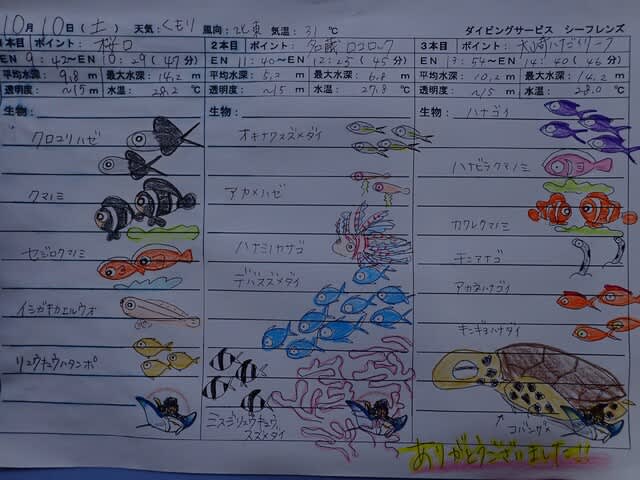 10月10日(土) 天気:くもり 風向:北東 気温:31℃ ダイビングサービス シーフレンズ
1本目 ポイント: 桜口
EN 9:42~EN 10:29(47分)
平均水深: 9.8 m 最大水深: 14.2 m
透明度: ~15 m 水温: 28.2 ℃
生物:
クロユリハゼ
クマノミ
セジロクマノミ
イシガキカエルウオ
リュウキュウハタンポ
2本目 ポイント: 名蔵ロコロック
EN 11:40~EN 12:25(45分)
平均水深: 5.2 m 最大水深: 6.8 m
透明度: ~15 m 水温: 27.8 ℃
生物:
オキナワスズメダイ
アカメハゼ
ハナミノカサゴ
デバスズメダイ
ミスジリュウキュウ
スズメダイ
3本目 ポイント: 大崎ハナゴイリーフ
EN 13:54~EN 14:40(46分)
平均水深: 10.2 m 最大水深: 14.2 m
透明度: ~15 m 水温: 28.0 ℃
生物: ハナゴイ
ハナビラクマノミ
カクレクマノミ
チンアナゴ
アカネハナゴイ
キンギョハナダイ
コバンザメ
ありがとうございました!!